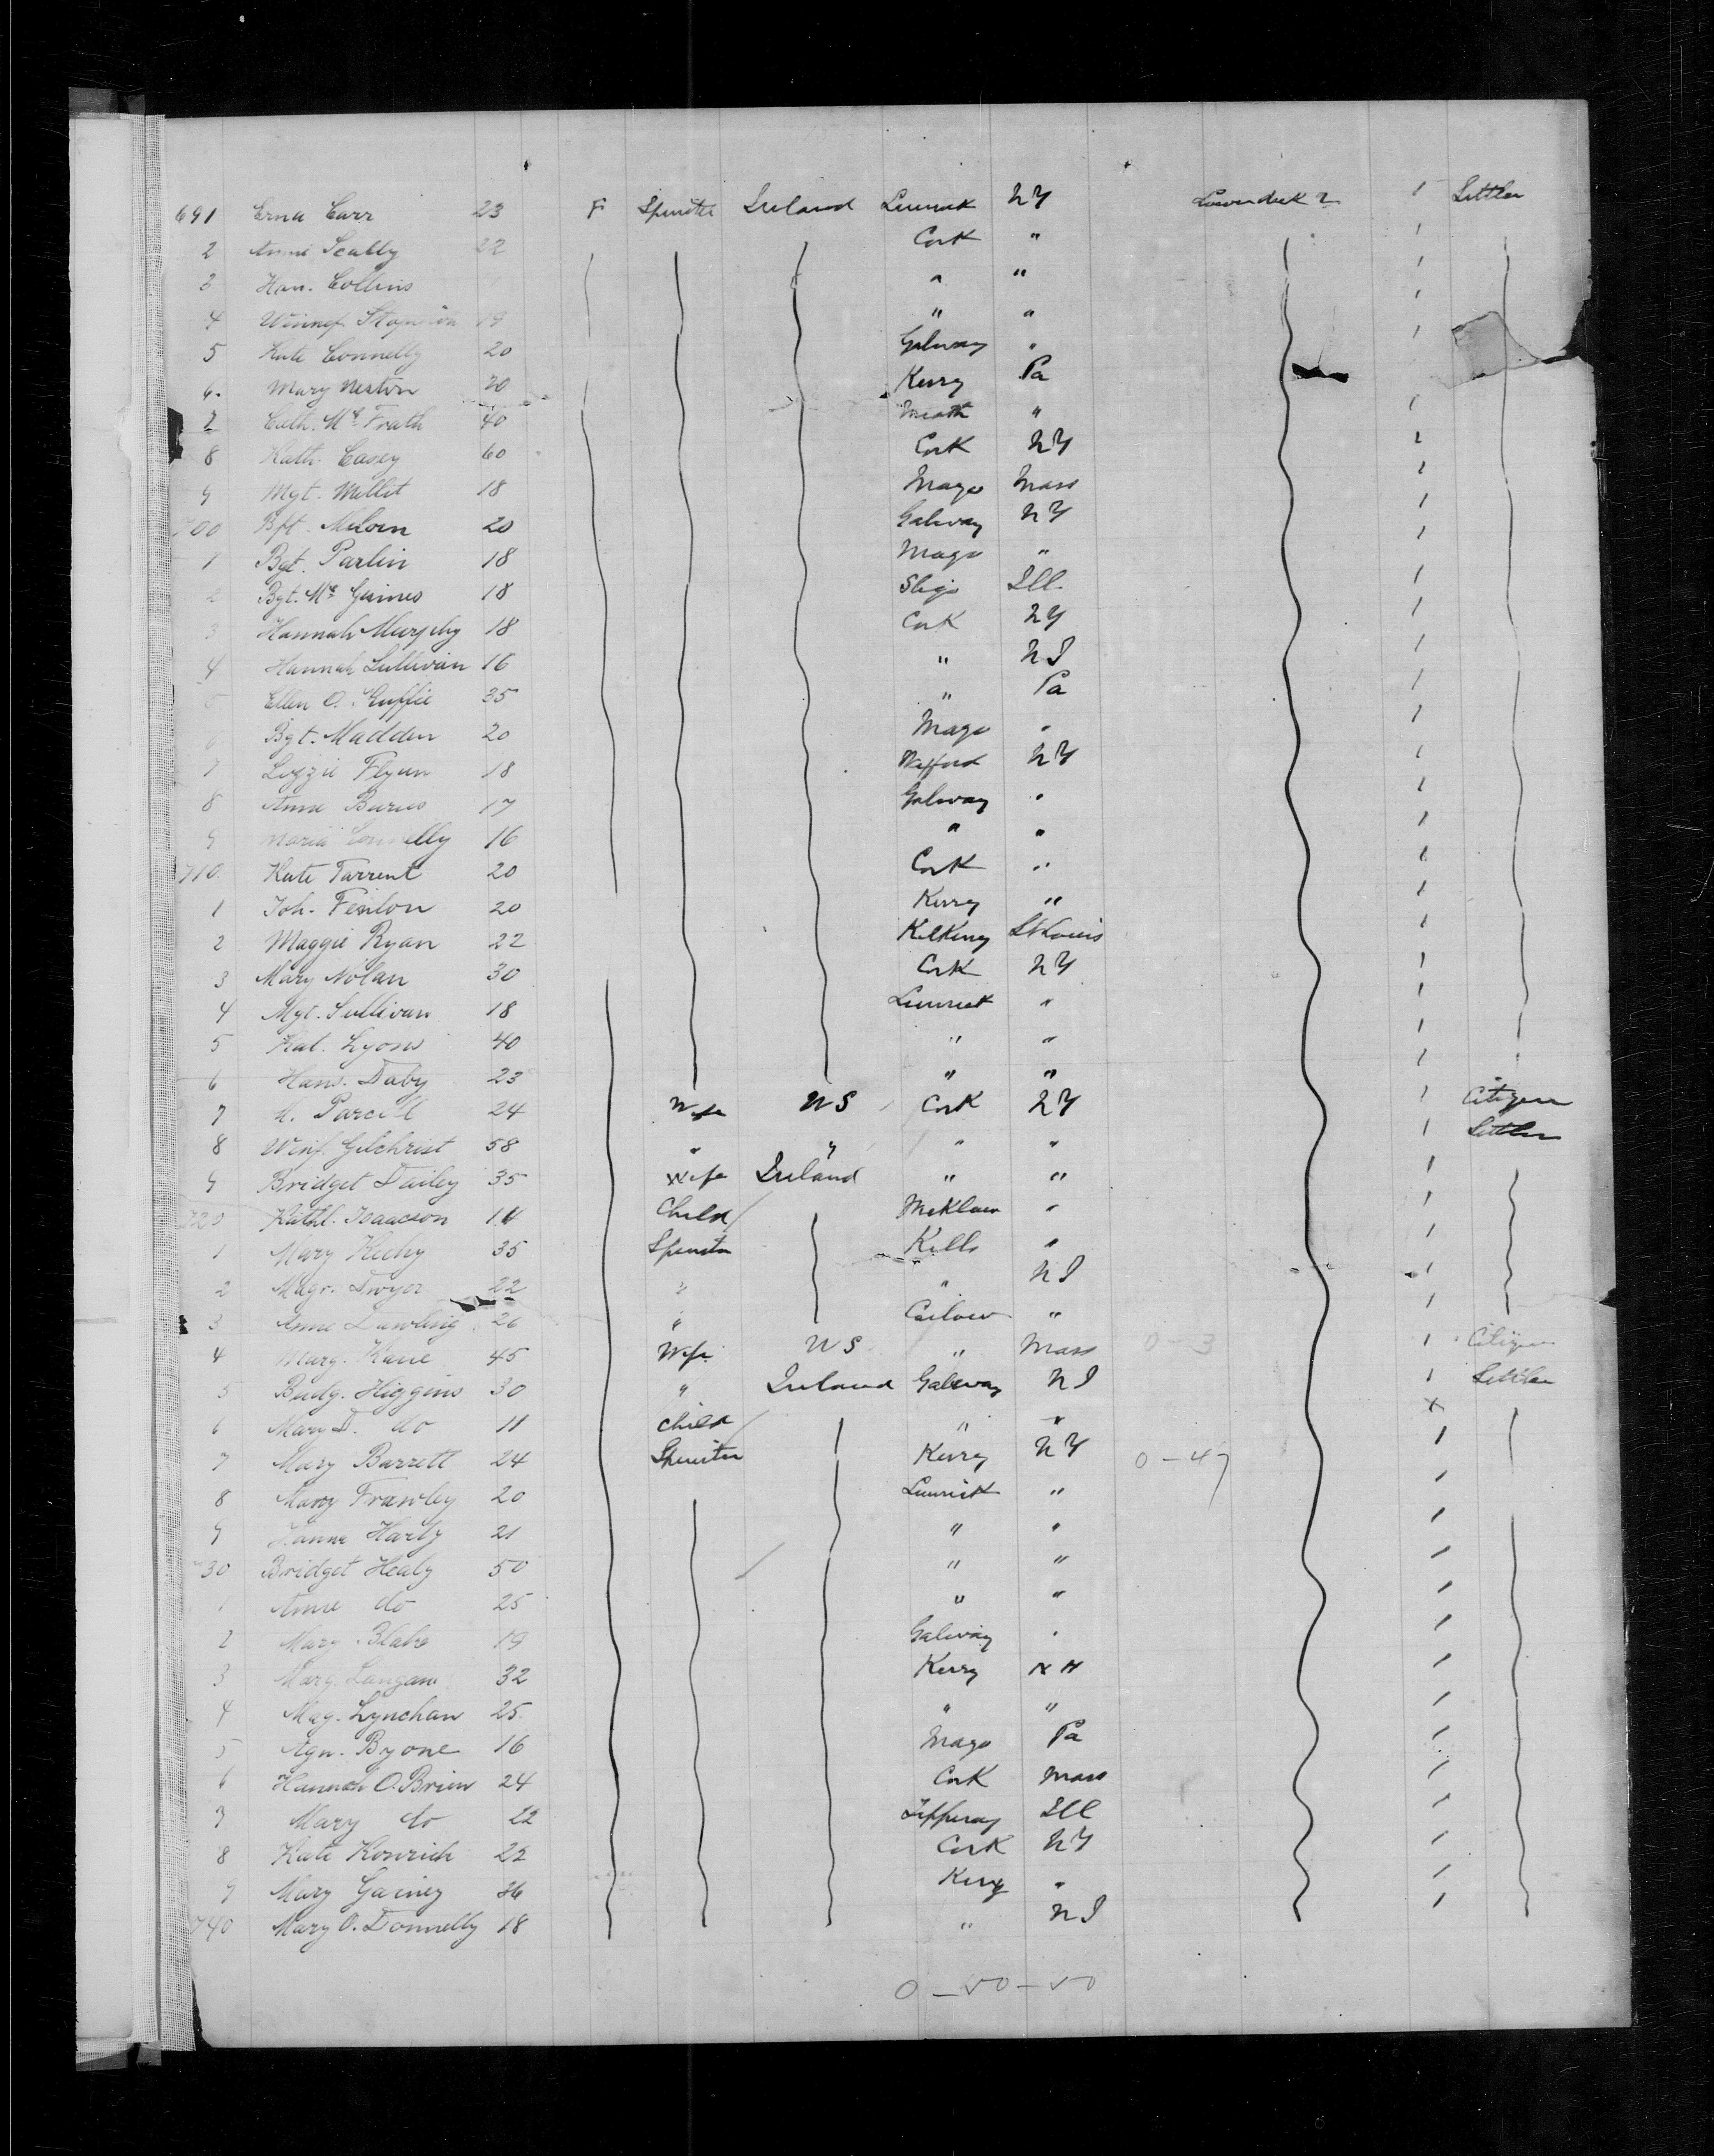 691 Erna Carr 23 F Spinster Ireland Limerick NY Lowerdeck 2 1 Settler
2 Annie Scully 22 Cork " 1
3 Han. Collins " " 1
4 Winnef 19 " " 1
5 Kate Connelly 20 Galway " 1
6. Mary 20 Kerry Pa
7 Cath. Mc Frath 40 Meath " 1
8 Kath. Casey 60 Cork NY 1
9 Mgt. Millit 18 Mayo Mass 1
700 Bgt. Meloen 20 Galway NY 1
1 Bgt. Parlin 18 Mayo " 1
2 Bgt. Mc Guines 18 Sligo Ill 1
3 Hannah Murphy 18 Cork NY 1
4 Hannah Sullivan 16 " NJ 1
5 Ellen O. Guffie 35 " Pa 1
6 Bgt. Madden 20 Mayo " 1
7 Lizzie Flynn 18 Wexford NY 1
8 Anne Burns 17 Galway " 1
9 Maria Connelly 16 " " 1
710 Kate Tarrent 20 Cork " 1
1 Joh. Fenlon 20 Kerry " 1
2 Maggie Ryan 22 Kilkeny St Louis 1
3 Mary Nolan 30 Cork NY 1
4 Mgt. Sullivan 18 Limerick " 1
5 Kat. Lyons 40 " " 1
6 Hans. Daby 23 " " 1
7 Parcell 24 Wife US Cork NY 1 Citizen
8 Winf. Gilchrist 58 " " " " 1 Settler
9 Bridget Dailey 35 Wife Ireland " " 1
720 Kathl. Isaacson 14 Child " 1
1 Mary 35 Spinster Kells " 1
2 Magr. Dwyer 22 " " NJ 1
3 Anne Dawling 26 " Carlow " 1
4 Marg. Kane 45 Wife US " Mass 0-3 1 Citizen
5 Bridg. Higgins 30 " Ireland Galway NJ 1 Settler
6 Mary D. do 11 Child " " x
7 Mary Barrett 24 Spinster Kerry NY 0-47 1
8 Mary Frawley 20 Limerick " 1
9 Hanna Harty 21 " " 1
730 Bridget Healy 50 " " 1
1 Anne do 25 " " 1
2 Mary Blake 19 Galway " 1
3 Marg. Langan 32 Kerry NH 1
4 Mag. Lynchan 25 " " 1
5 Agn. Byone 16 Mayo Pa 1
6 Hannah O. Brien 24 Cork Mass 1
7 Mary do 22 Tipperay Ill 1
8 Kate Konrich 22 Cork NY 1
9 Mary Gainey 26 Kerry " 1
740 Mary O. Donnelly 18 " NJ 1
0-50-50